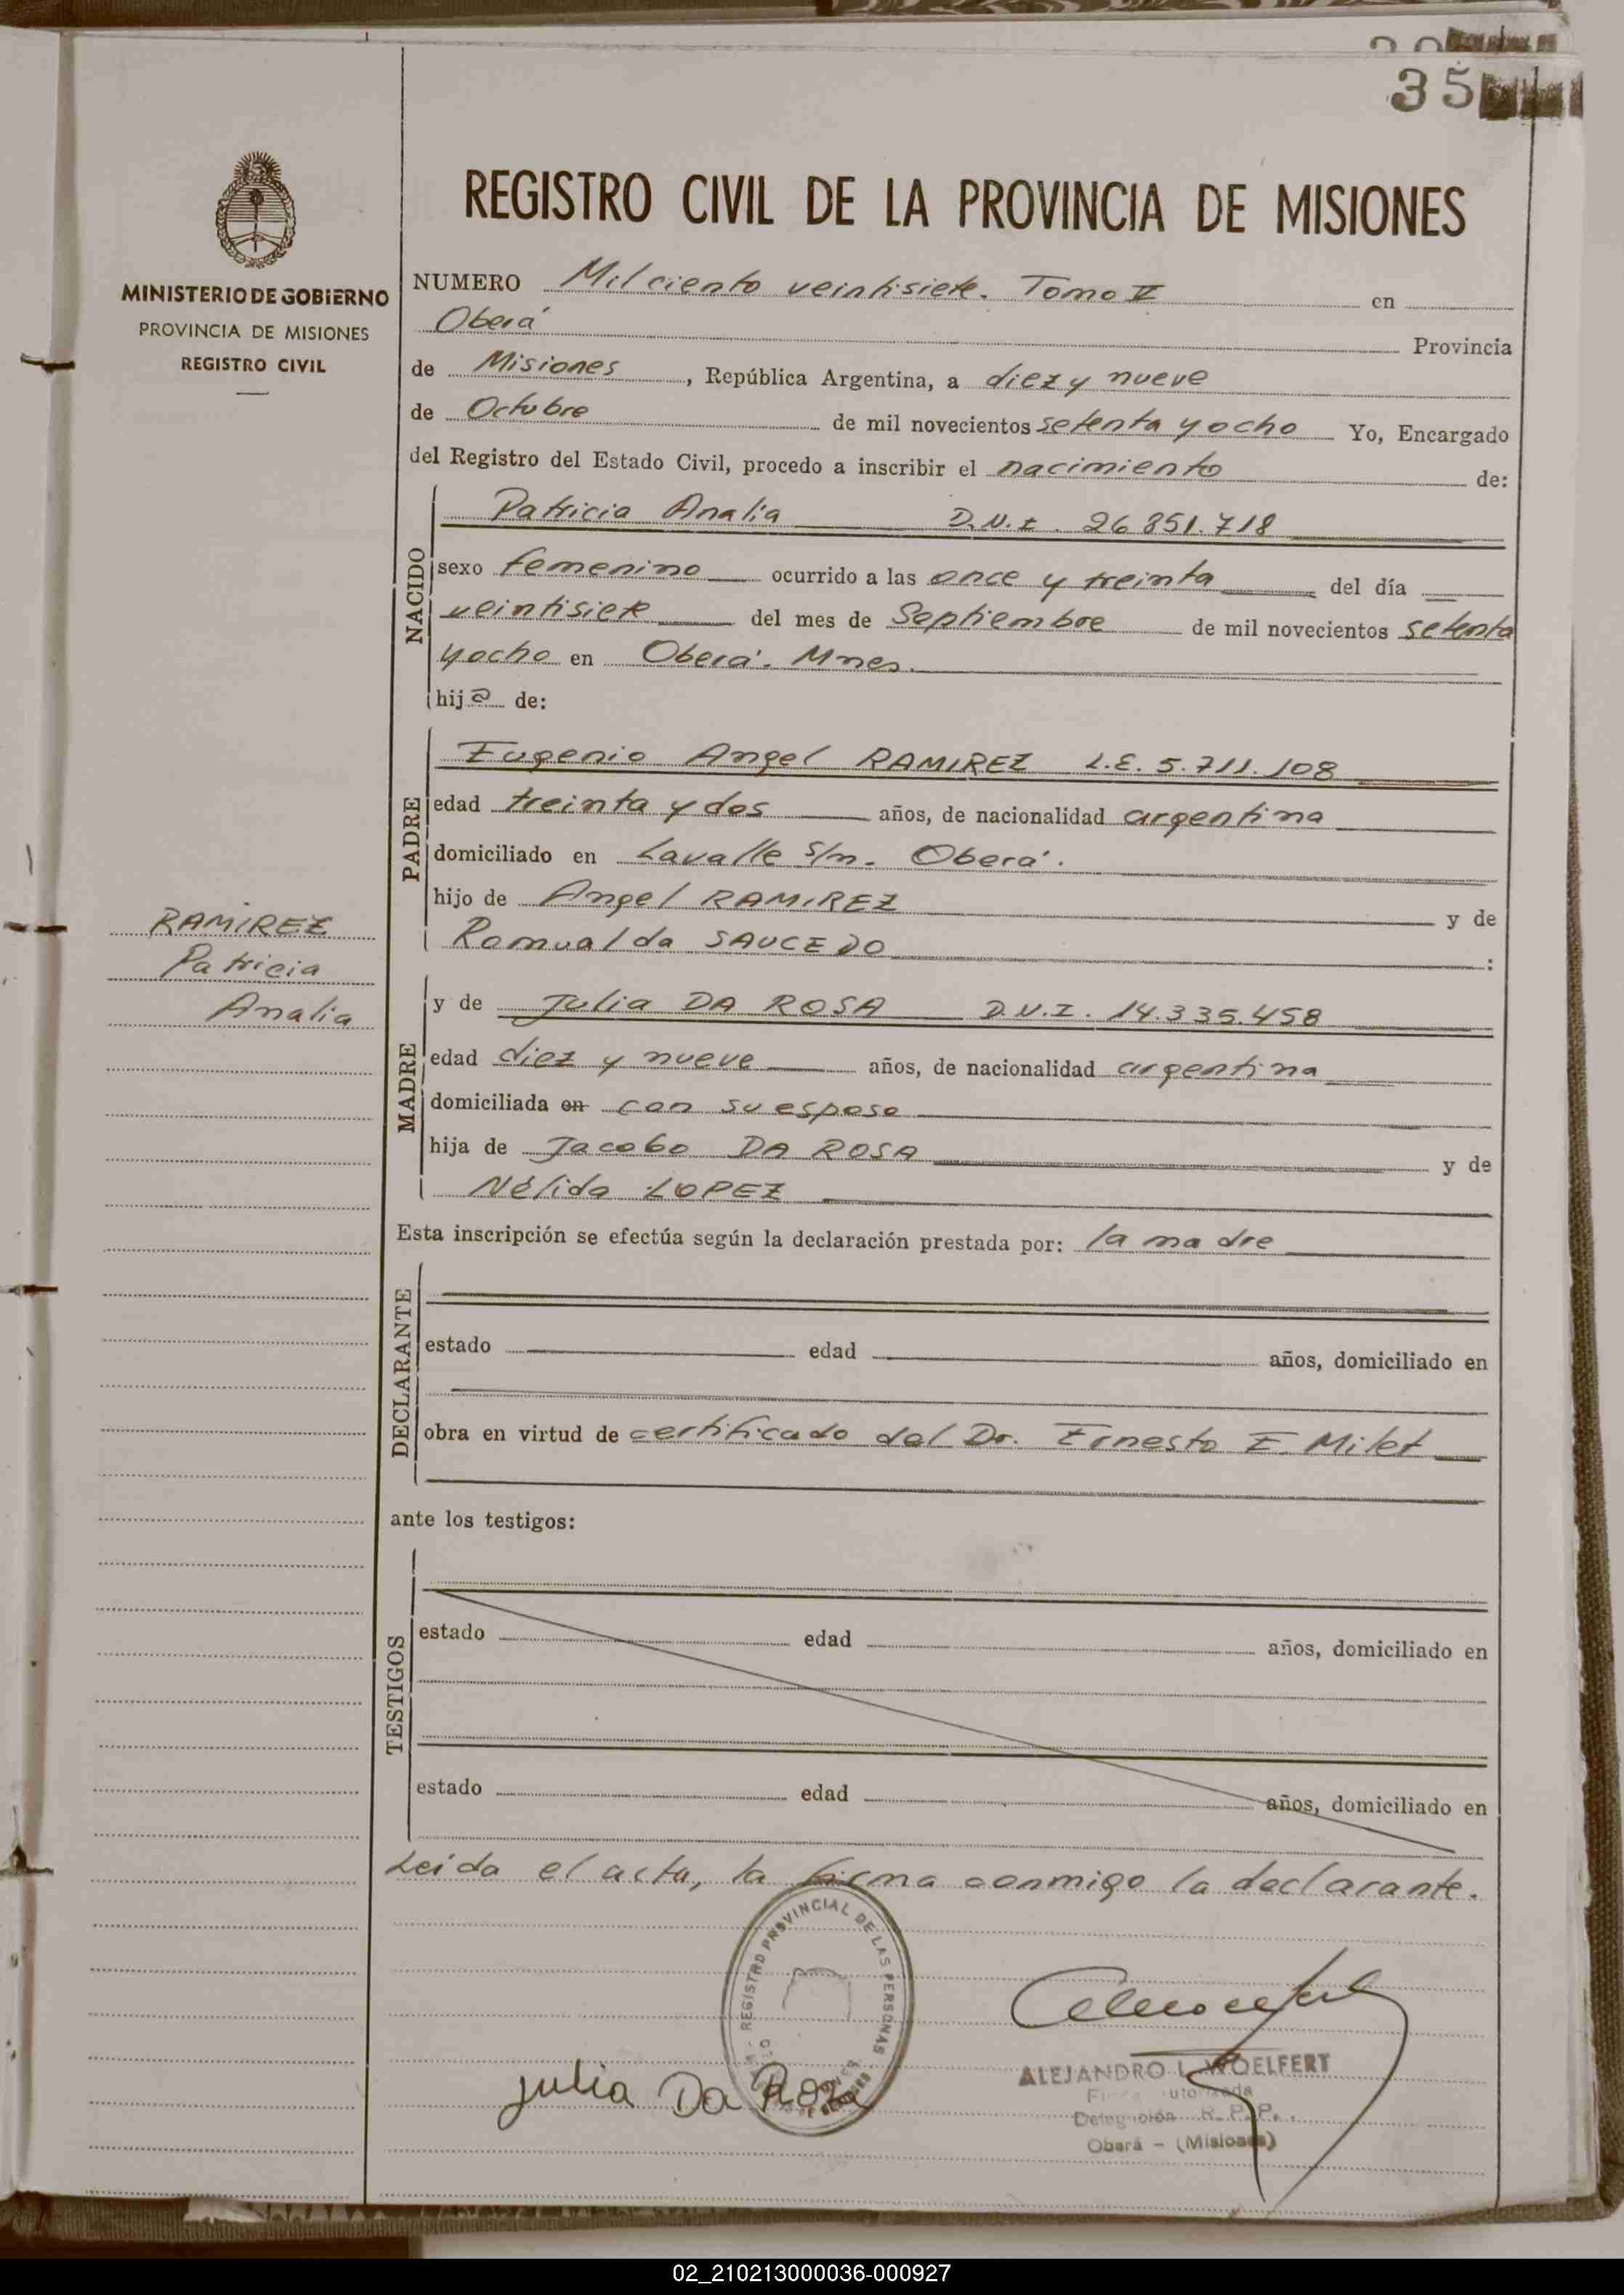 35
REGISTRO CIVIL DE LA PROVINCIA DE MISIONES
MINISTERIO DE GOBIERNO
PROVINCIA DE MISIONES
REGISTRO CIVIL
NUMERO Mil ciento veintisiete. Tomo V en
Oberá Provincia
de Misiones, República Argentina, a diez y nueve
de Octubre de mil novecientos setenta y ocho Yo, Encargado
del Registro del Estado Civil, procedo a inscribir el nacimiento de:
NACIDO
Patricia Analia D.N.I. 26.851.718
sexo femenino ocurrido a las once y treinta del día
veintisiete del mes de Septiembre de mil novecientos setenta
y ocho en Oberá. Mnes.
hija de:
PADRE
Eugenio Angel RAMIREZ L.E. 5.711.108
edad treinta y dos años, de nacionalidad argentina
domiciliado en Lavalle s/n. Oberá.
hijo de Angel RAMIREZ y de
Romualda SAUCEDO :
RAMIREZ
Patricia
Analia
MADRE
y de Julia DA ROSA D.N.I. 14.335.458
edad diez y nueve años, de nacionalidad argentina
domiciliada en con su esposo
hija de Jacobo DA ROSA y de
Nélida LOPEZ
Esta inscripción se efectúa según la declaración prestada por: la madre
DECLARANTE
estado edad años, domiciliado en
obra en virtud de certificado del Dr. Ernesto E. Milet
ante los testigos:
TESTIGOS
estado edad años, domiciliado en
estado edad años, domiciliado en
Leida el acta, la firma conmigo la declarante.
REGISTRO PROVINCIAL DE LAS PERSONAS
Julia Da Rosa
ALEJANDRO L. WOELFERT
Firma autorizada
Delegación R. P. P.
Oberá - (Misiones)
02_210213000036-000927